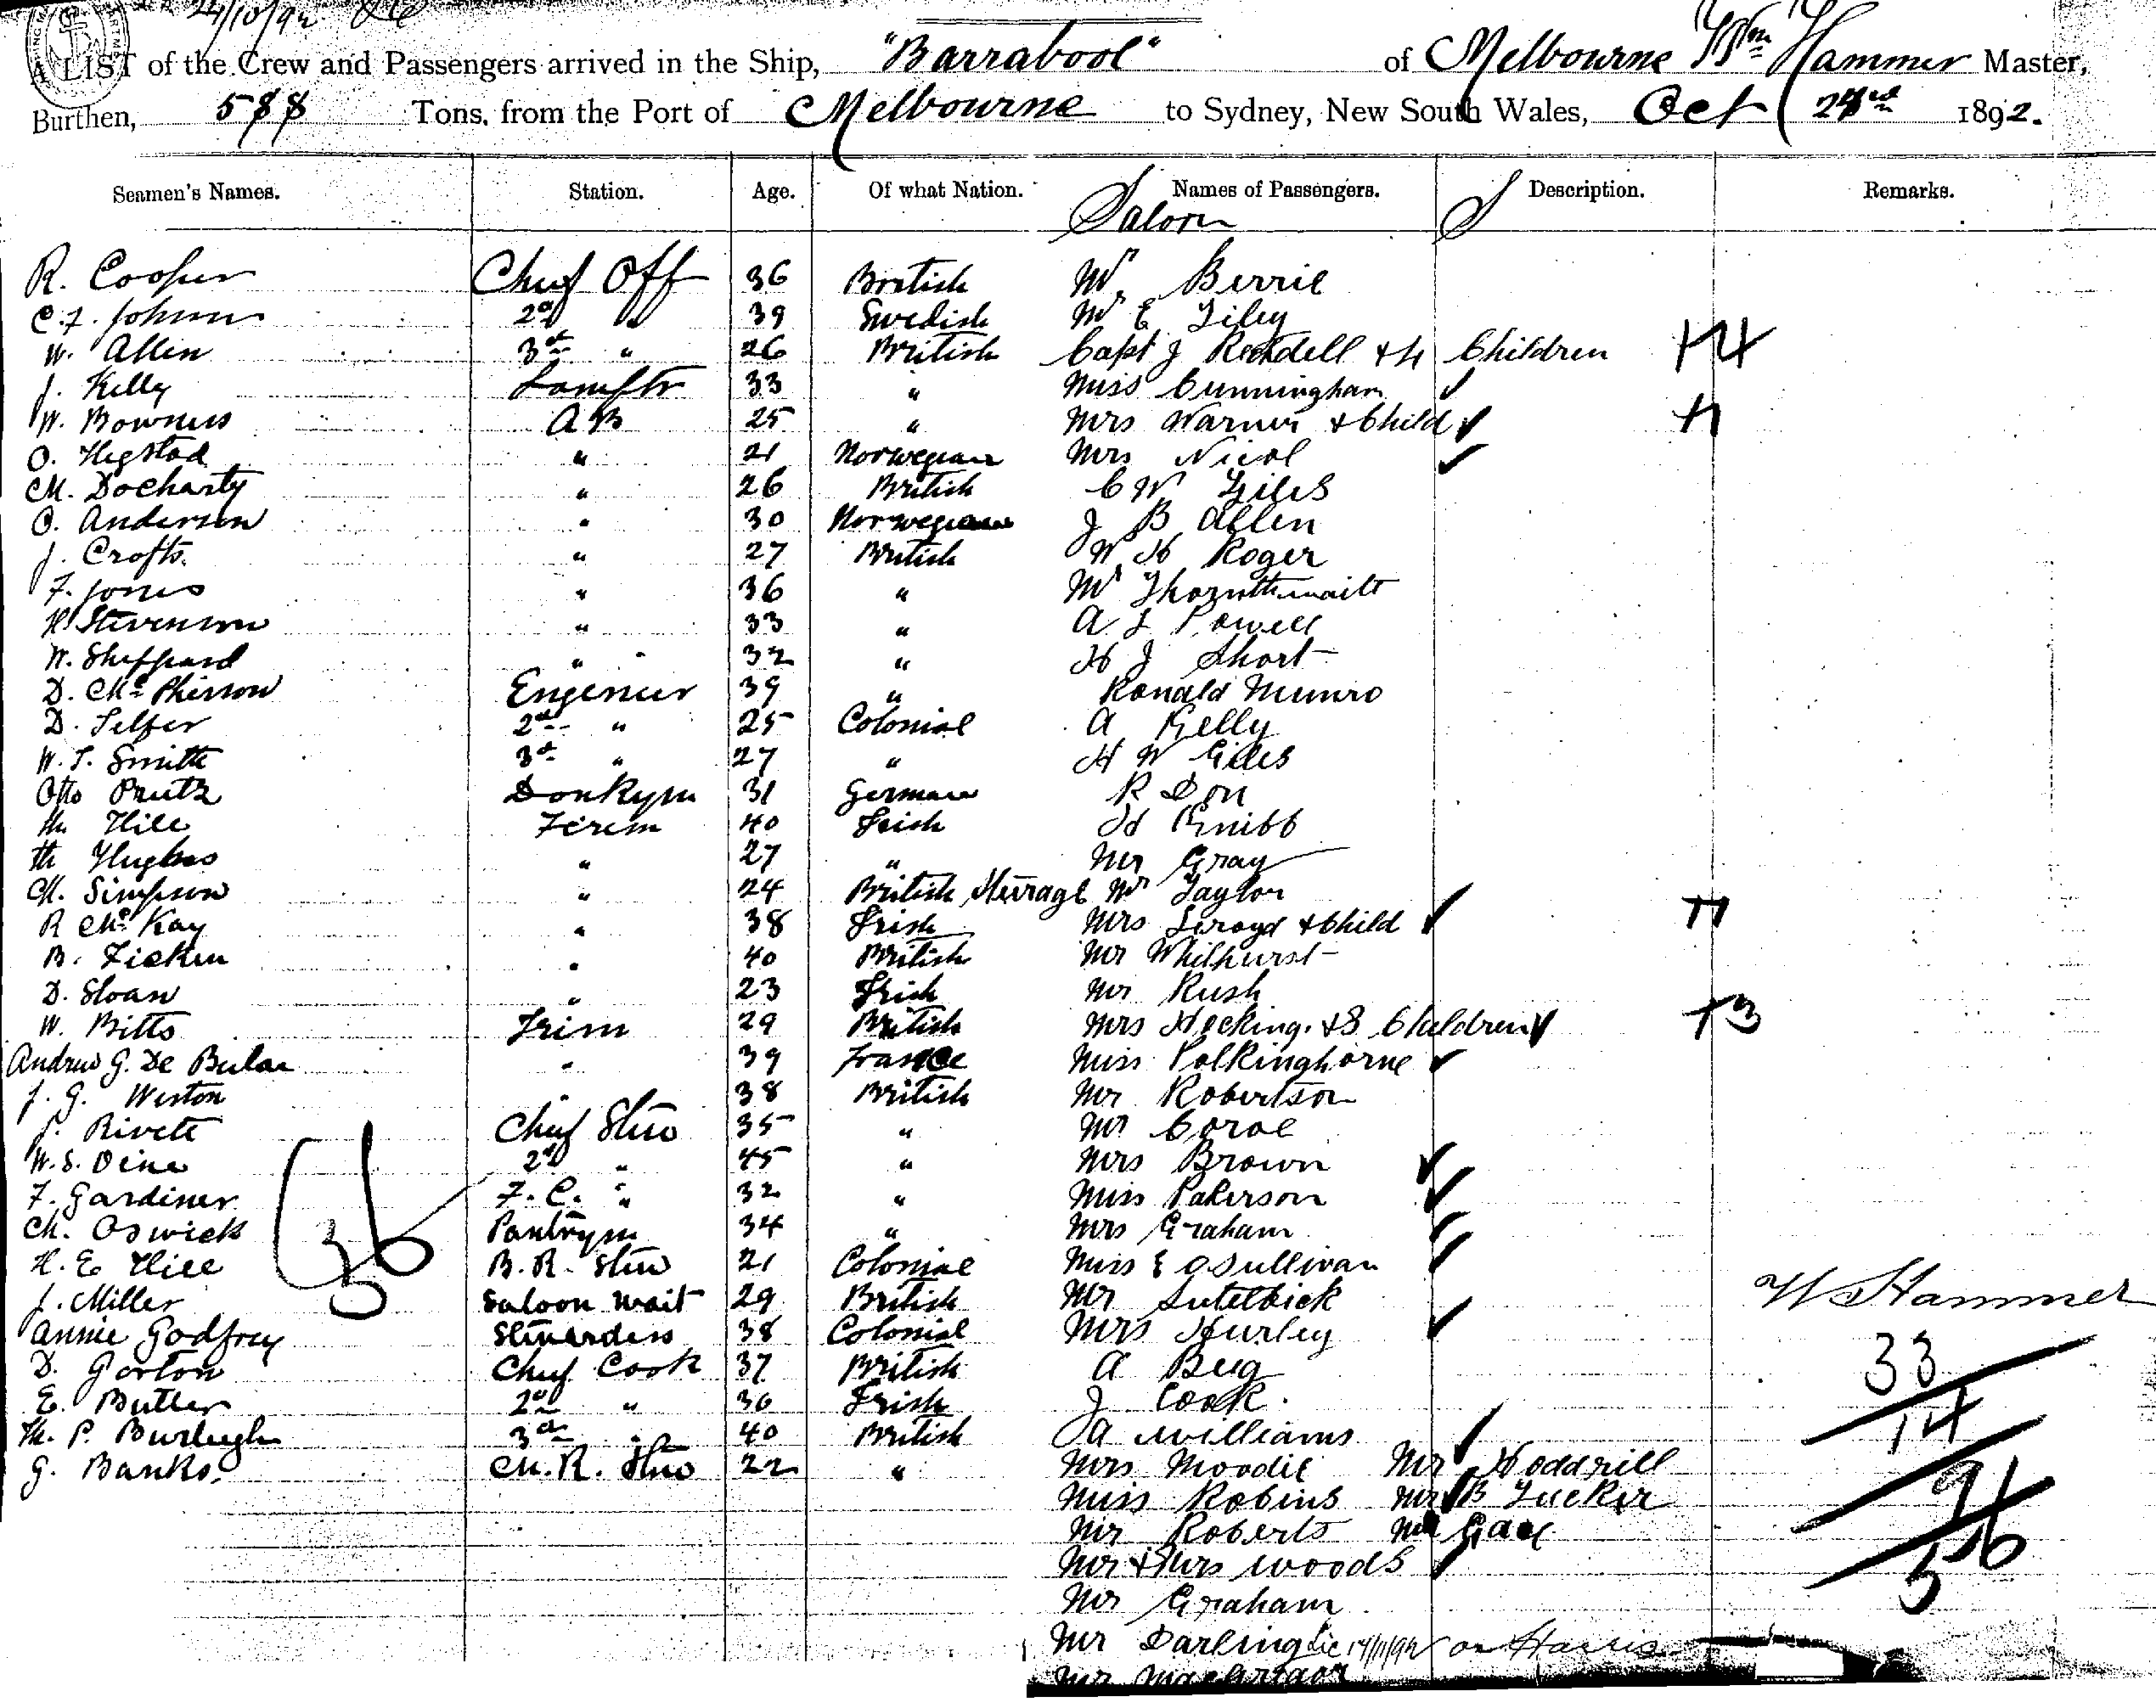 24/10/92
A LIST of the Crew and Passengers arrived in the Ship, "Barrabool" of Melbourne Wm Hammer Master,
Burthen, 588 Tons, from the Port of Melbourne to Sydney, New South Wales, Oct 1892.
Seamen's Names. Station. Age. Of what Nation. Names of Passengers. Description. Remarks.
Saloon
R. Cooper Chief Off 36 British Mr Berrie
C. F. Johnson 2d " 39 Swedish Mr E Tiley
W. Allen 3rd " 26 British Capt J Rendell + 4 Children +4
J. Kelly Lamptr 33 " Miss Cunningham
W. Bowness AB 25 " Mrs Warner + Child +1
O. Hegstad " 21 Norwegian Mrs Nicol
M. Docharty " 26 British C W Giles
O. Anderson " 30 Norwegian J B Allen
J. Crofts. " 27 British W H Roger
F. Jones " 36 " Mr Thornthwaite
H. Stevenson " 33 " A L Powell
W. Sheppard " 32 " H J Short
D. McPherson Engeneer 39 " Ronald Munro
D. Telfer 2nd " 25 Colonial A Kelly
W. T. Smith 3rd " 27 " H W Giles
Otto Prutz Donkym 31 German R Don
Hill Firem 40 Irish H Knibb
Hughes " 27 " Mr Gray
M. Simpson " 24 British Steerage Mr Taylor
R McKay " 38 Irish Mrs + Child +1
B. Ficken " 40 British Mr Whilhurst
D. Sloan " 23 Irish Mr Rush
W. Bitts Trim 29 British Mrs Hocking. + 3 Children +3
Andrew G. De Bular " 39 France Miss Polkinghorne
J. G. Weston " 38 British Mr Robertson
J. Rivett Chief Stew 35 " Mr
W. S. Dine 2d " 45 " Mrs Brown
F. Gardiner F. C. " 32 " Miss Paterson
M. Oswick Pantrym 34 " Mrs Graham
H. E Hill B. R. Stew 21 Colonial Miss E OSullivan
J. Miller Saloon Wait 29 British Mr Sutelbick
W Hammer
Annie Godfrey Stewardess 38 Colonial Mrs Hurley
D. Gorton Chief Cook 37 British A Beig
E. Butler 2nd " 36 Irish J Cook.
Th. P. Burleigh 3rd " 40 British A Williams
G. Banks. M. R. Stew 22 " Mrs Moodie Mr Hoddrill
Miss Robins Mr B Tucker
Mr Roberts
Mr + Mrs Woods
Mr Graham
Mr Darling Lic 14/11/92 on Harris
Mr MacGregor
36
33
14